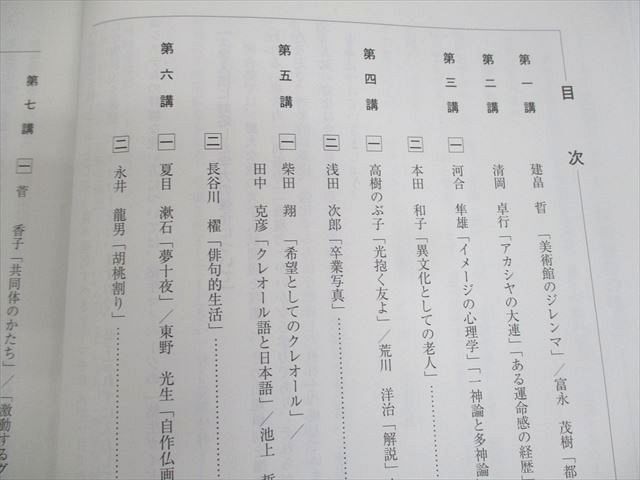 目次
第一講 建畠 哲「美術館のジレンマ」／富永 茂樹「都
第二講 清岡 卓行「アカシヤの大連」「ある運命感の経歴」
第三講 一 河合 隼雄「イメージの心理学」「一神論と多神論
二 本田 和子「異文化としての老人」…………
第四講 一 高樹のぶ子「光抱く友よ」／荒川 洋治「解説」…
二 浅田 次郎「卒業写真」…………
第五講 一 柴田 翔「希望としてのクレオール」／
田中 克彦「クレオール語と日本語」／池上
二 長谷川 櫂「俳句的生活」…………
第六講 一 夏目 漱石「夢十夜」／東野 光生「自作仏画
二 永井 龍男「胡桃割り」…………
第七講 一 菅 香子「共同体のかたち」／「激動するグ